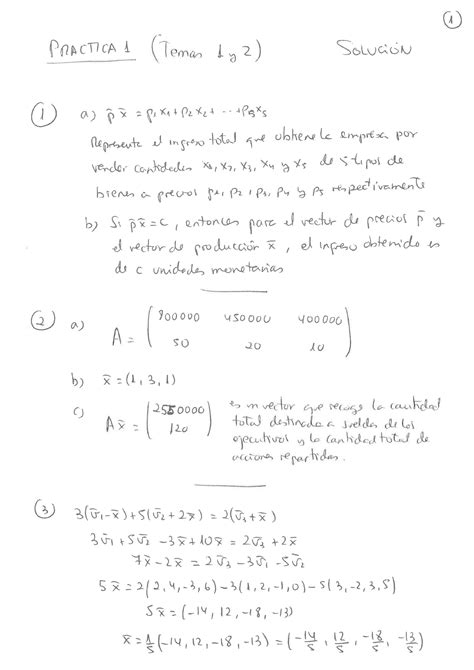 1
PRACTICA 1 (Temas 1 y 2) SOLUCIÓN
1 a) p̄ x̄ = p₁x₁+p₂x₂+ ··· +p₅x₅
Representa el ingreso total que obtiene la empresa por
vender cantidades x₁, x₂, x₃, x₄ y x₅ de 5 tipos de
bienes a precios p₁, p₂, p₃, p₄ y p₅ respectivamente
b) Si p̄x̄=c, entonces para el vector de precios p̄ y
el vector de producción x̄, el ingreso obtenido es
de c unidades monetarias
2 a) A = ( 800000 450000 400000
50 20 10 )
b) x̄ = (1, 3, 1)
c) A x̄ = ( 2550000
120 ) es un vector que recoge la cantidad
total destinada a sueldos de los
ejecutivos y la cantidad total de
acciones repartidas.
3 3(v̄₁-x̄)+5(v̄₂+2x̄) = 2(v̄₃+x̄)
3v̄₁+5v̄₂ -3x̄+10x̄ = 2v̄₃+2x̄
7x̄-2x̄ = 2v̄₃-3v̄₁-5v̄₂
5x̄ = 2(2,4,-3,6)-3(1,2,-1,0)-5(3,-2,3,5)
5x̄ = (-14, 12, -18, -13)
x̄ = 1/5 (-14, 12, -18, -13) = (-14/5, 12/5, -18/5, -13/5)